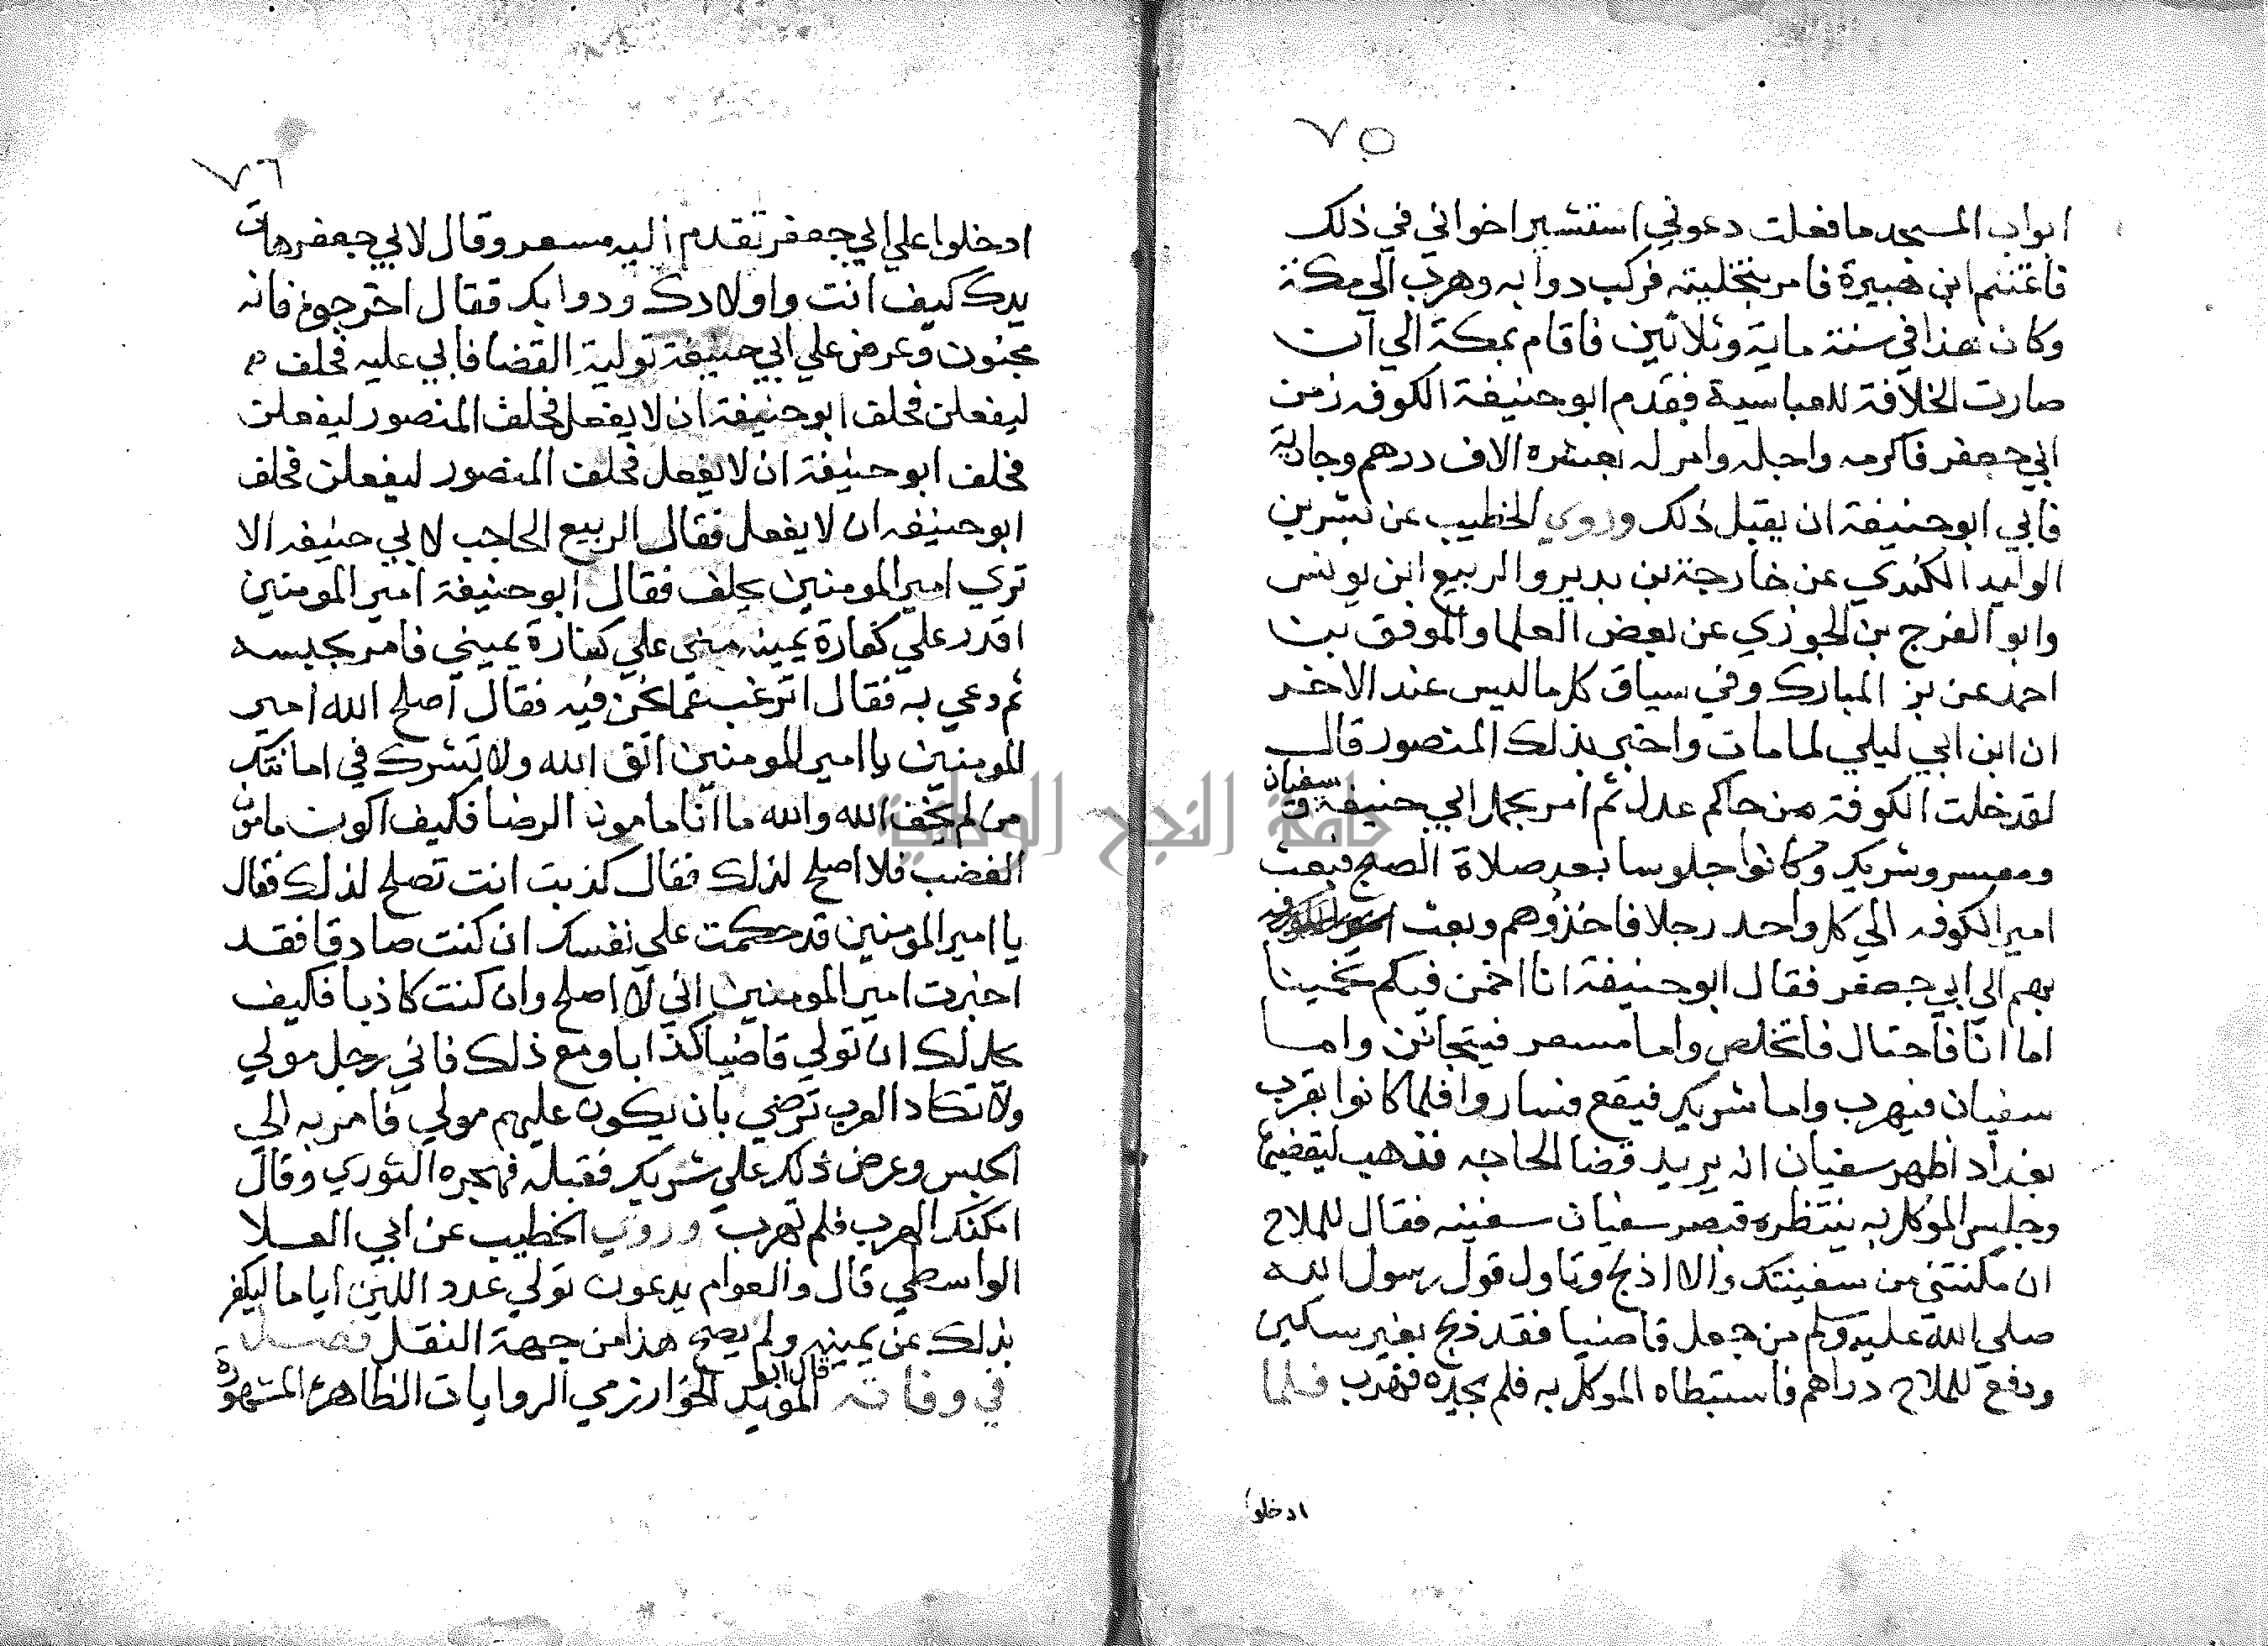 ٧٥
ابواب المسجد ما فعلت دعوني استشير اخواني في ذلك
فاغتنم ابن هبيرة فامر بتخليته فركب دوابه وهرب الي مكة
وكان هذا في سنة ماية وثلاثين فاقام بمكة الي ان
صارت الخلافة للعباسية فقدم ابو حنيفة الكوفه زمن
ابي جعفر فاكرمه واجله وامر له بعشره الاف درهم وجارية
فابي ابو حنيفة ان يقبل ذلك وروي الخطيب عن بشر بن
الوليد الكندي عن خارجة بن بدير والربيع ابن يونس
وابو الفرج بن الجوزي عن بعض العلما والموفق بن
احمد عن بن المبارك وفي سياق كل ما ليس عند الاخر
ان ابن ابي ليلي لما مات واخبر بذلك المنصور قال
لقد خلت الكوفة من حاكم عدل ثم امر بحمل ابي حنيفة وسفيان
ومعسر وشريك وكانوا جلوسا بعد صلاة الصبح فبعث
امير الكوفه الي كل واحد رجلا فاخذوهم وبعث
بهم الي ابي جعفر فقال ابو حنيفة انا اخمن فيكم تخمينا
اما انا فاحتال فاتخلص واما مسعر فيتجانن واما
سفيان فيهرب واما شريك فيقع فساروا فلما كانوا بقرب
بغداد اظهر سفيان انه يريد قضا الحاجه فذهب ليقضيها
وجلس الموكل به ينتظره فبصر سفيان سفينه فقال للملاح
ان مكنتني من سفينتك والا اذبح وتاول قول رسول الله
صلي الله عليه وسلم من جعل قاضيا فقد ذبح بغير سكين
ودفع للملاح دراهم فاستبطاه الموكل به فلم يجده فهرب فلما
ادخلوا
٧٦
ادخلوا علي ابي جعفر تقدم اليه مسعر وقال لابي جعفر هات
يدك كيف انت واولادك ودوابك فقال اخرجوه فانه
مجنون وعرض علي ابي حنيفة تولية القضا فابي عليه فحلف
ليفعلن فحلف ابو حنيفة ان لا يفعل فحلف المنصور ليفعلن
فحلف ابو حنيفة ان لا يفعل فحلف المنصور ليفعلن فحلف
ابو حنيفه ان لا يفعل فقال الربيع الحاجب لابي حنيفه الا
تري امير المومنين يحلف فقال ابو حنيفة امير المومنين
اقدر علي كفارة يمينه مني علي كفارة يميني فامر بحبسه
ثم دعي به فقال اترغب عما نحن فيه فقال اصلح الله امير
المومنين يا امير المومنين اتق الله ولا تشرك في امانتك
من لم يخف الله والله ما انا مامون الرضا فكيف اكون مامون
الغضب فلا اصلح لذلك فقال كذبت انت تصلح لذلك فقال
يا امير المومنين قد حكمت علي نفسك ان كنت صادقا فقد
اخبرت امير المومنين اني لا اصلح وان كنت كاذبا فكيف
يحل لك ان تولي قاضيا كذابا ومع ذلك فاني رجل مولي
ولا تكاد العرب ترضي بان يكون عليهم مولي فامر به الي
الحبس وعرض ذلك علي شريك فقبله فهجره الثوري وقال
امكنك الهرب فلم تهرب وروي الخطيب عن ابي العلا
الواسطي قال والعوام يدعون تولي عدد اللبن اياما ليكفر
بذلك عن يمينه ولم يصح هذا من جهة النقل فصل
في وفاته قال ابو الموئيد الخوارزمي الروايات الظاهرة المشهورة
جامعة النجاح الوطنية